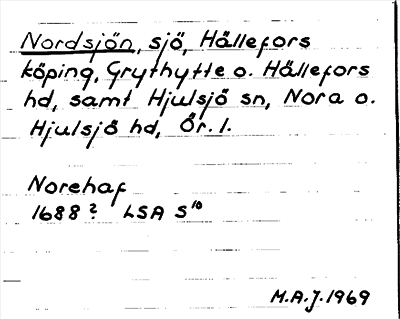 Nordsjön, sjö, Hällefors
köping, Grythytte o. Hällefors
hd, samt Hjulsjö sn, Nora o.
Hjulsjö hd, Ör. l.
Norehaf
1688? LSA S¹⁰
M.A.J. 1969